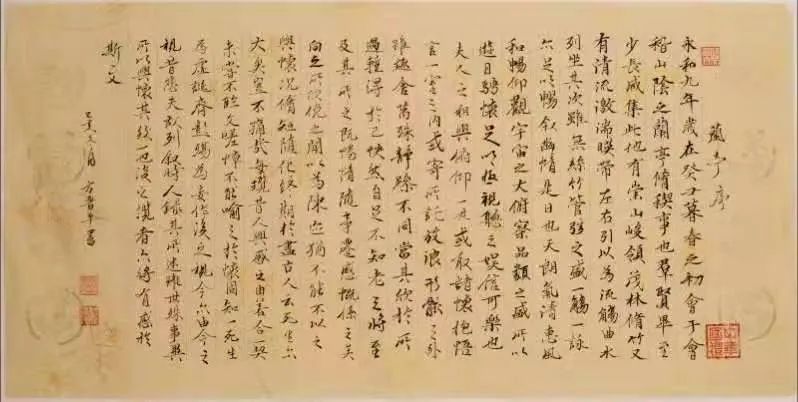 蘭亭序
永和九年歲在癸丑暮春之初會于會
稽山陰之蘭亭脩稧事也羣賢畢至
少長咸集此地有崇山峻領茂林脩竹又
有清流激湍暎帶左右引以為流觴曲水
列坐其次雖無絲竹管弦之盛一觴一詠
亦足以暢叙幽情是日也天朗氣清惠風
和暢仰觀宇宙之大俯察品類之盛所以
遊目騁懷足以極視聽之娛信可樂也
夫人之相與俯仰一世或取諸懷抱悟
言一室之內或寄所託放浪形骸之外
雖趣舍萬殊靜躁不同當其欣於所
遇蹔得於己快然自足不知老之將至
及其所之既惓情隨事遷感慨係之矣
向之所欣俛之間以為陳迹猶不能不以之
興懷況脩短隨化終期於盡古人云死生亦
大矣豈不痛哉每攬昔人興感之由若合一契
未嘗不臨文嗟悼不能喻之於懷固知一死生
為虛誕齊彭殤為妄作後之視今亦由今之
視昔悲夫故列叙時人錄其所述雖世殊事異
所以興懷其致一也後之攬者亦將有感於
斯文
書